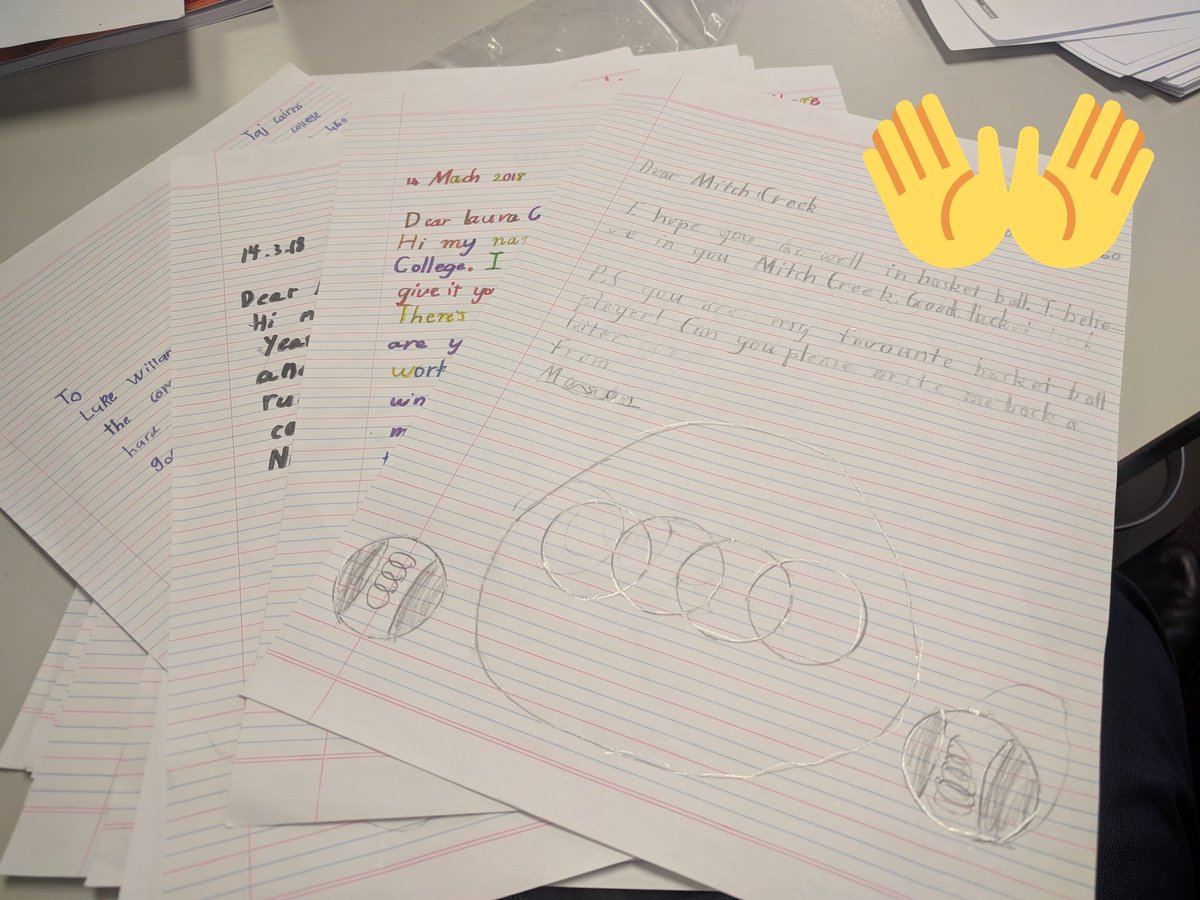 Taj cairns
college
460
To
Luke Willian
the com
hard
go
14.3.18
Dear
Hi m
Year
and
ru
co
N
14 Mach 2018
Dear laura C
Hi my nam
College. I
give it yo
There's
are y
work
win
m
t
Dear Mitch Creek
I hope you do well in basket ball. I belie
ve in you Mitch Creek. Good luck
P.S you are my favourite basket ball
player! Can you please write me back a
letter
from
Mason